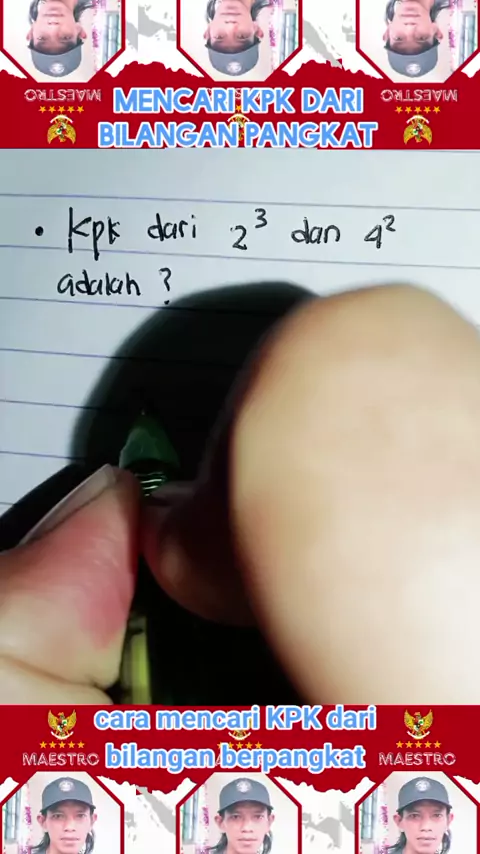 MAESTRO MAESTRO
MENCARI KPK DARI
BILANGAN PANGKAT
• KpK dari 2³ dan 4²
adalah ?
cara mencari KPK dari
bilangan berpangkat
MAESTRO MAESTRO